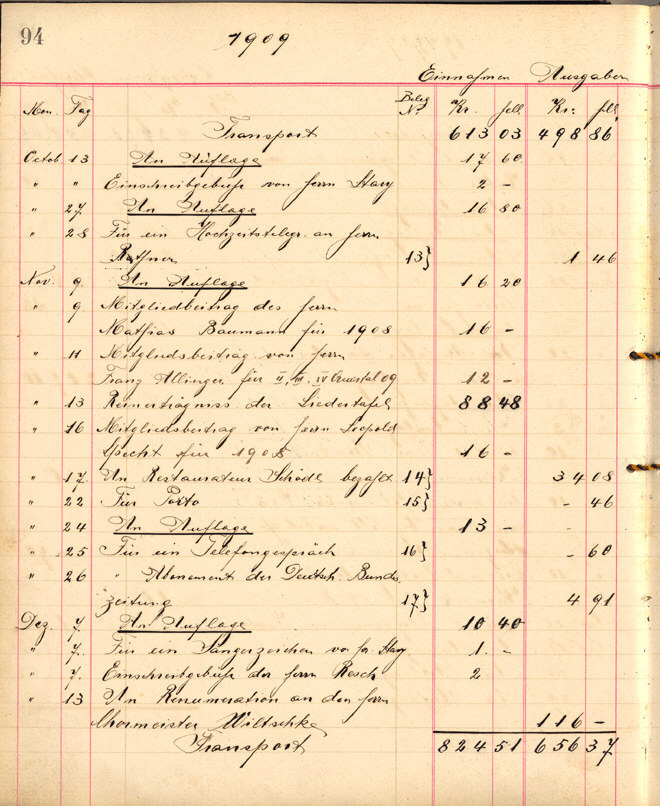 94
1909
Einnahmen Ausgaben
Mon. Tag Beleg Nº Kr. hll Kr. hll
Transport 613 03 498 86
Octob 13 An Auflage 17 60
" " Einschreibgebühr von Herrn Stary 2 –
" 27 An Auflage 16 80
" 28 Für ein Hochzeitstelegr. an Herrn
13} 1 46
Nov. 9. An Auflage 16 20
" 9. Mitgliedbeitrag des Herrn
Mathias Baumann für 1908 16 –
" 11 Mitgliedsbeitrag von Herrn
Franz Allinger für II, III, IV Quartal 09 12 –
" 13 Reinerträgniss der Liedertafel 88 48
" 16 Mitgliedsbeitrag von Herrn Leopold
Specht für 1908 16 –
" 17. An Restaurateur Schödl bezahlt 14} 34 08
" 22 Für Porto 15} – 46
" 24 An Auflage 13 –
" 25 Für ein Telefongespräch 16} – 60
" 26 " Abonement der Deutsch. Bundes
zeitung 17} 4 91
Dez. 7 An Auflage 10 40
" 7. Für ein Sängerzeichen von Hr. Stary 1 –
" 7. Einschreibgebühr der Herrn Resch 2
" 13 An Renumeration an den Herrn
Chormeister Wiltschke 116 –
Transport 824 51 656 37